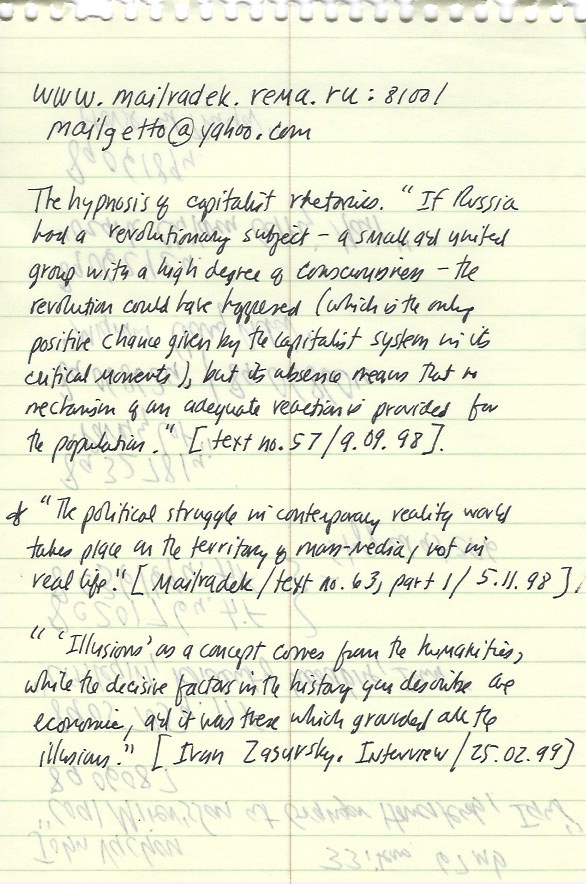 www.mailradek.rema.ru:8100/
mailgetto@yahoo.com
The hypnosis of capitalist rhetorics. "If Russia
had a revolutionary subject – a small and united
group with a high degree of consciousness – the
revolution could have happened (which is the only
positive chance given by the capitalist system in its
critical moments), but its absence means that no
mechanism of an adequate reaction is provided for
the population." [text no. 57/9.09.98].
* "The political struggle in contemporary reality world
takes place on the territory of mass-media, not in
real life." [Mailradek/text no. 63, part 1/5.11.98].
" 'Illusions' as a concept comes from the humanities,
while the decisive factors in the history you describe are
economic, and it was these which grounded all the
illusions." [Ivan Zasursky. Interview/25.02.99]